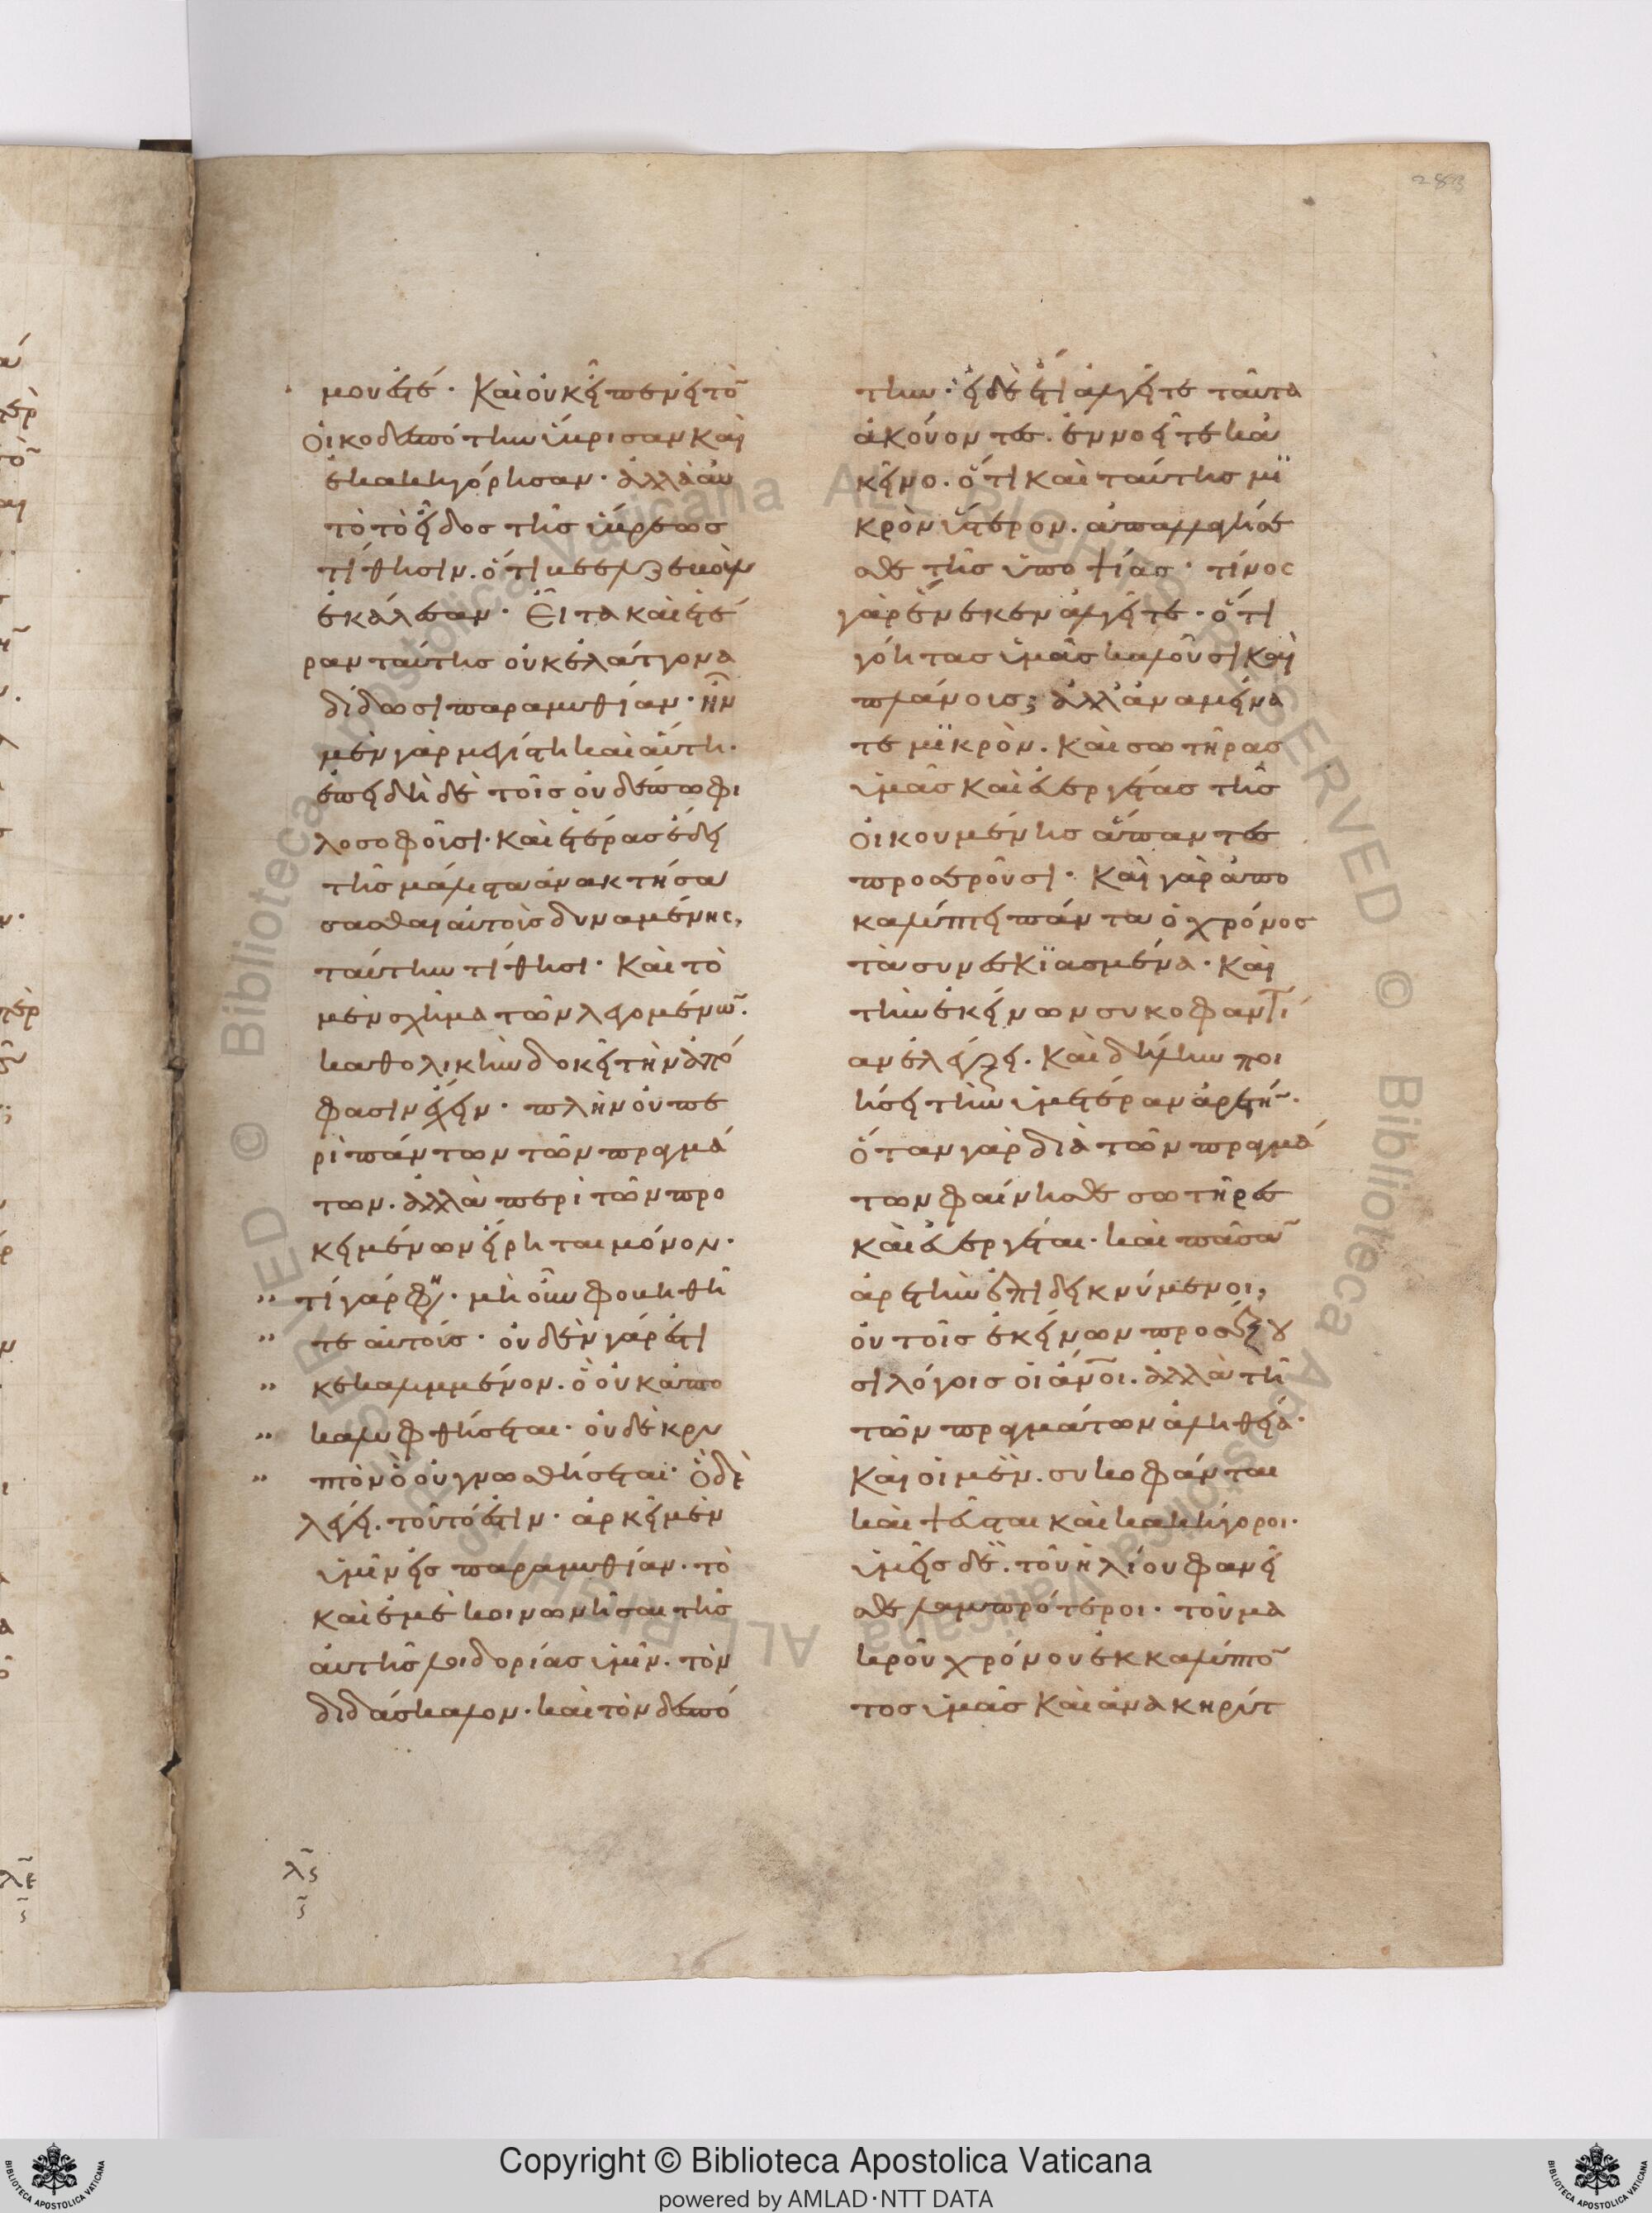 283
μονεστέ· Καὶ οὐκ εἶπεν εἰ τὸ͂
οἰκοδεσπότην ὕβρισαν καὶ
ἐκακηγόρησαν· ἀλλὰ αὐ
τὸ τὸ εἶδος τῆς ὕβρεως
τίθησιν. ὅτι βεελζεβοὺλ
ἐκάλεσαν· Εἶτα καὶ ἑτέ
ραν ταύτης οὐκ ἐλάττονα
δίδωσι παραμυθίαν· ἦν
μὲν γὰρ μεγίστη καὶ αὕτη·
ἐπειδὴ δὲ τοῖς οὐδέπω φι
λοσοφοῦσι· καὶ ἑτέρας ἔδει
τῆς μάλιστα ἀνακτήσα
σασθαι αὐτοὺς δυναμένης,
ταύτην τίθησι· Καὶ τὸ
μὲν σχῆμα τῶν λεγομένῶ·
καθολικὴν δοκεῖ τὴν ἀπό
φασιν ἔχειν· πλὴν οὐ πε
ρὶ πάντων τῶν πραγμά
των. ἀλλὰ περὶ τῶν προ
κειμένων εἴρηται μόνον·
τί γάρ φη· μὴ οὖν φοβηθῆ
τε αὐτούς· οὐδὲν γάρ ἐστι
κεκαλυμμένον. ὃ οὐκ ἀπο
καλυφθήσεται· οὐδὲ κρυ
πτὸν ὃ οὐ γνωσθήσεται· ὃ δὲ
λέγει. τοῦτό ἐστιν· ἀρκεῖ μὲν
ὑμῖν εἰς παραμυθίαν. τὸ
καὶ ἐμὲ κοινωνῆσαι τῆς
αὐτῆς λοιδορίας ὑμῖν. τὸν
διδάσκαλον· καὶ τὸν δεσπό
την· εἰ δὲ ἔτι ἀλγεῖτε ταῦτα
ἀκούοντες. ἐννοεῖτε κἀ
κεῖνο. ὅτι καὶ ταύτης μι
κρὸν ὕστερον. ἀπαλλαγήσε
σθε τῆς ὑποψίας· τίνος
γὰρ ἕνεκεν ἀλγεῖτε· ὅτι
γόητας ὑμᾶς καλοῦσι καὶ
πλάνους; ἀλλ' ἀναμείνα
τε μικρὸν. καὶ σωτῆρας
ὑμᾶς καὶ εὐεργέτας τῆς
οἰκουμένης ἅπαντες
προσεροῦσι· Καὶ γὰρ ἀπο
καλύπτει πάντα ὁ χρόνος
τὰ συνεσκιασμένα· καὶ
τὴν ἐκείνων συκοφαντί
αν ἐλέγξει. καὶ δήλην ποι
ήσει τὴν ὑμετέραν ἀρετή͂·
ὅταν γὰρ διὰ τῶν πραγμά
των φαίνησθε σωτῆρες
καὶ εὐεργέται· καὶ πᾶσᾶ
ἀρετὴν ἐπιδεικνύμενοι,
οὐ τοῖς ἐκείνων προσέξου
σι λόγοις οἱ ἄνοι. ἀλλὰ τῆ
τῶν πραγμάτων ἀληθεία·
Καὶ οἱ μὲν. συκοφάνται
καὶ ψεῦσται καὶ κακήγοροι·
ὑμεῖς δὲ. τοῦ ἡλίου φανεῖ
σθε λαμπρότεροι· τοῦ μα
κροῦ χρόνου ἐκκαλύπτο͂
τος ὑμᾶς καὶ ἀνακηρύτ
λς
ς
36
Copyright © Biblioteca Apostolica Vaticana
powered by AMLAD·NTT DATA